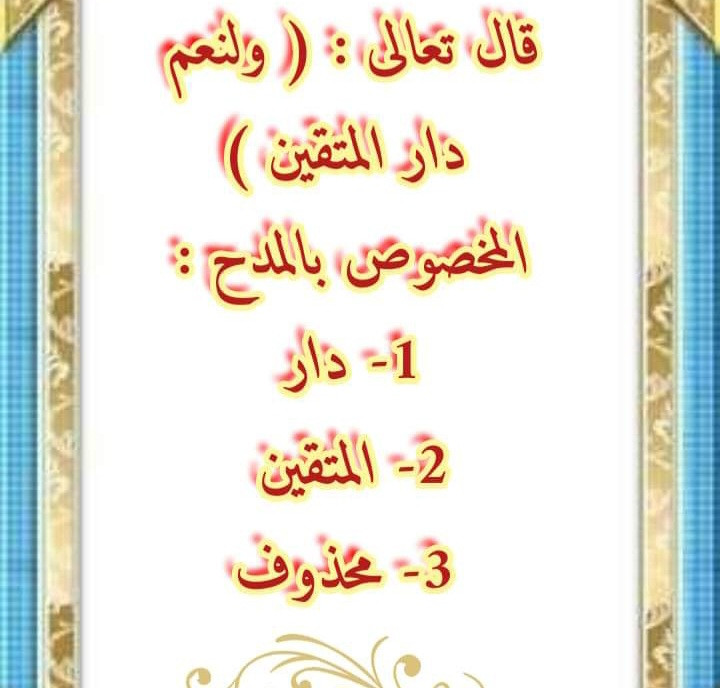 قال تعالى : ( ولنعم
دار المتقين )
المخصوص بالمدح :
1- دار
2- المتقين
3- محذوف